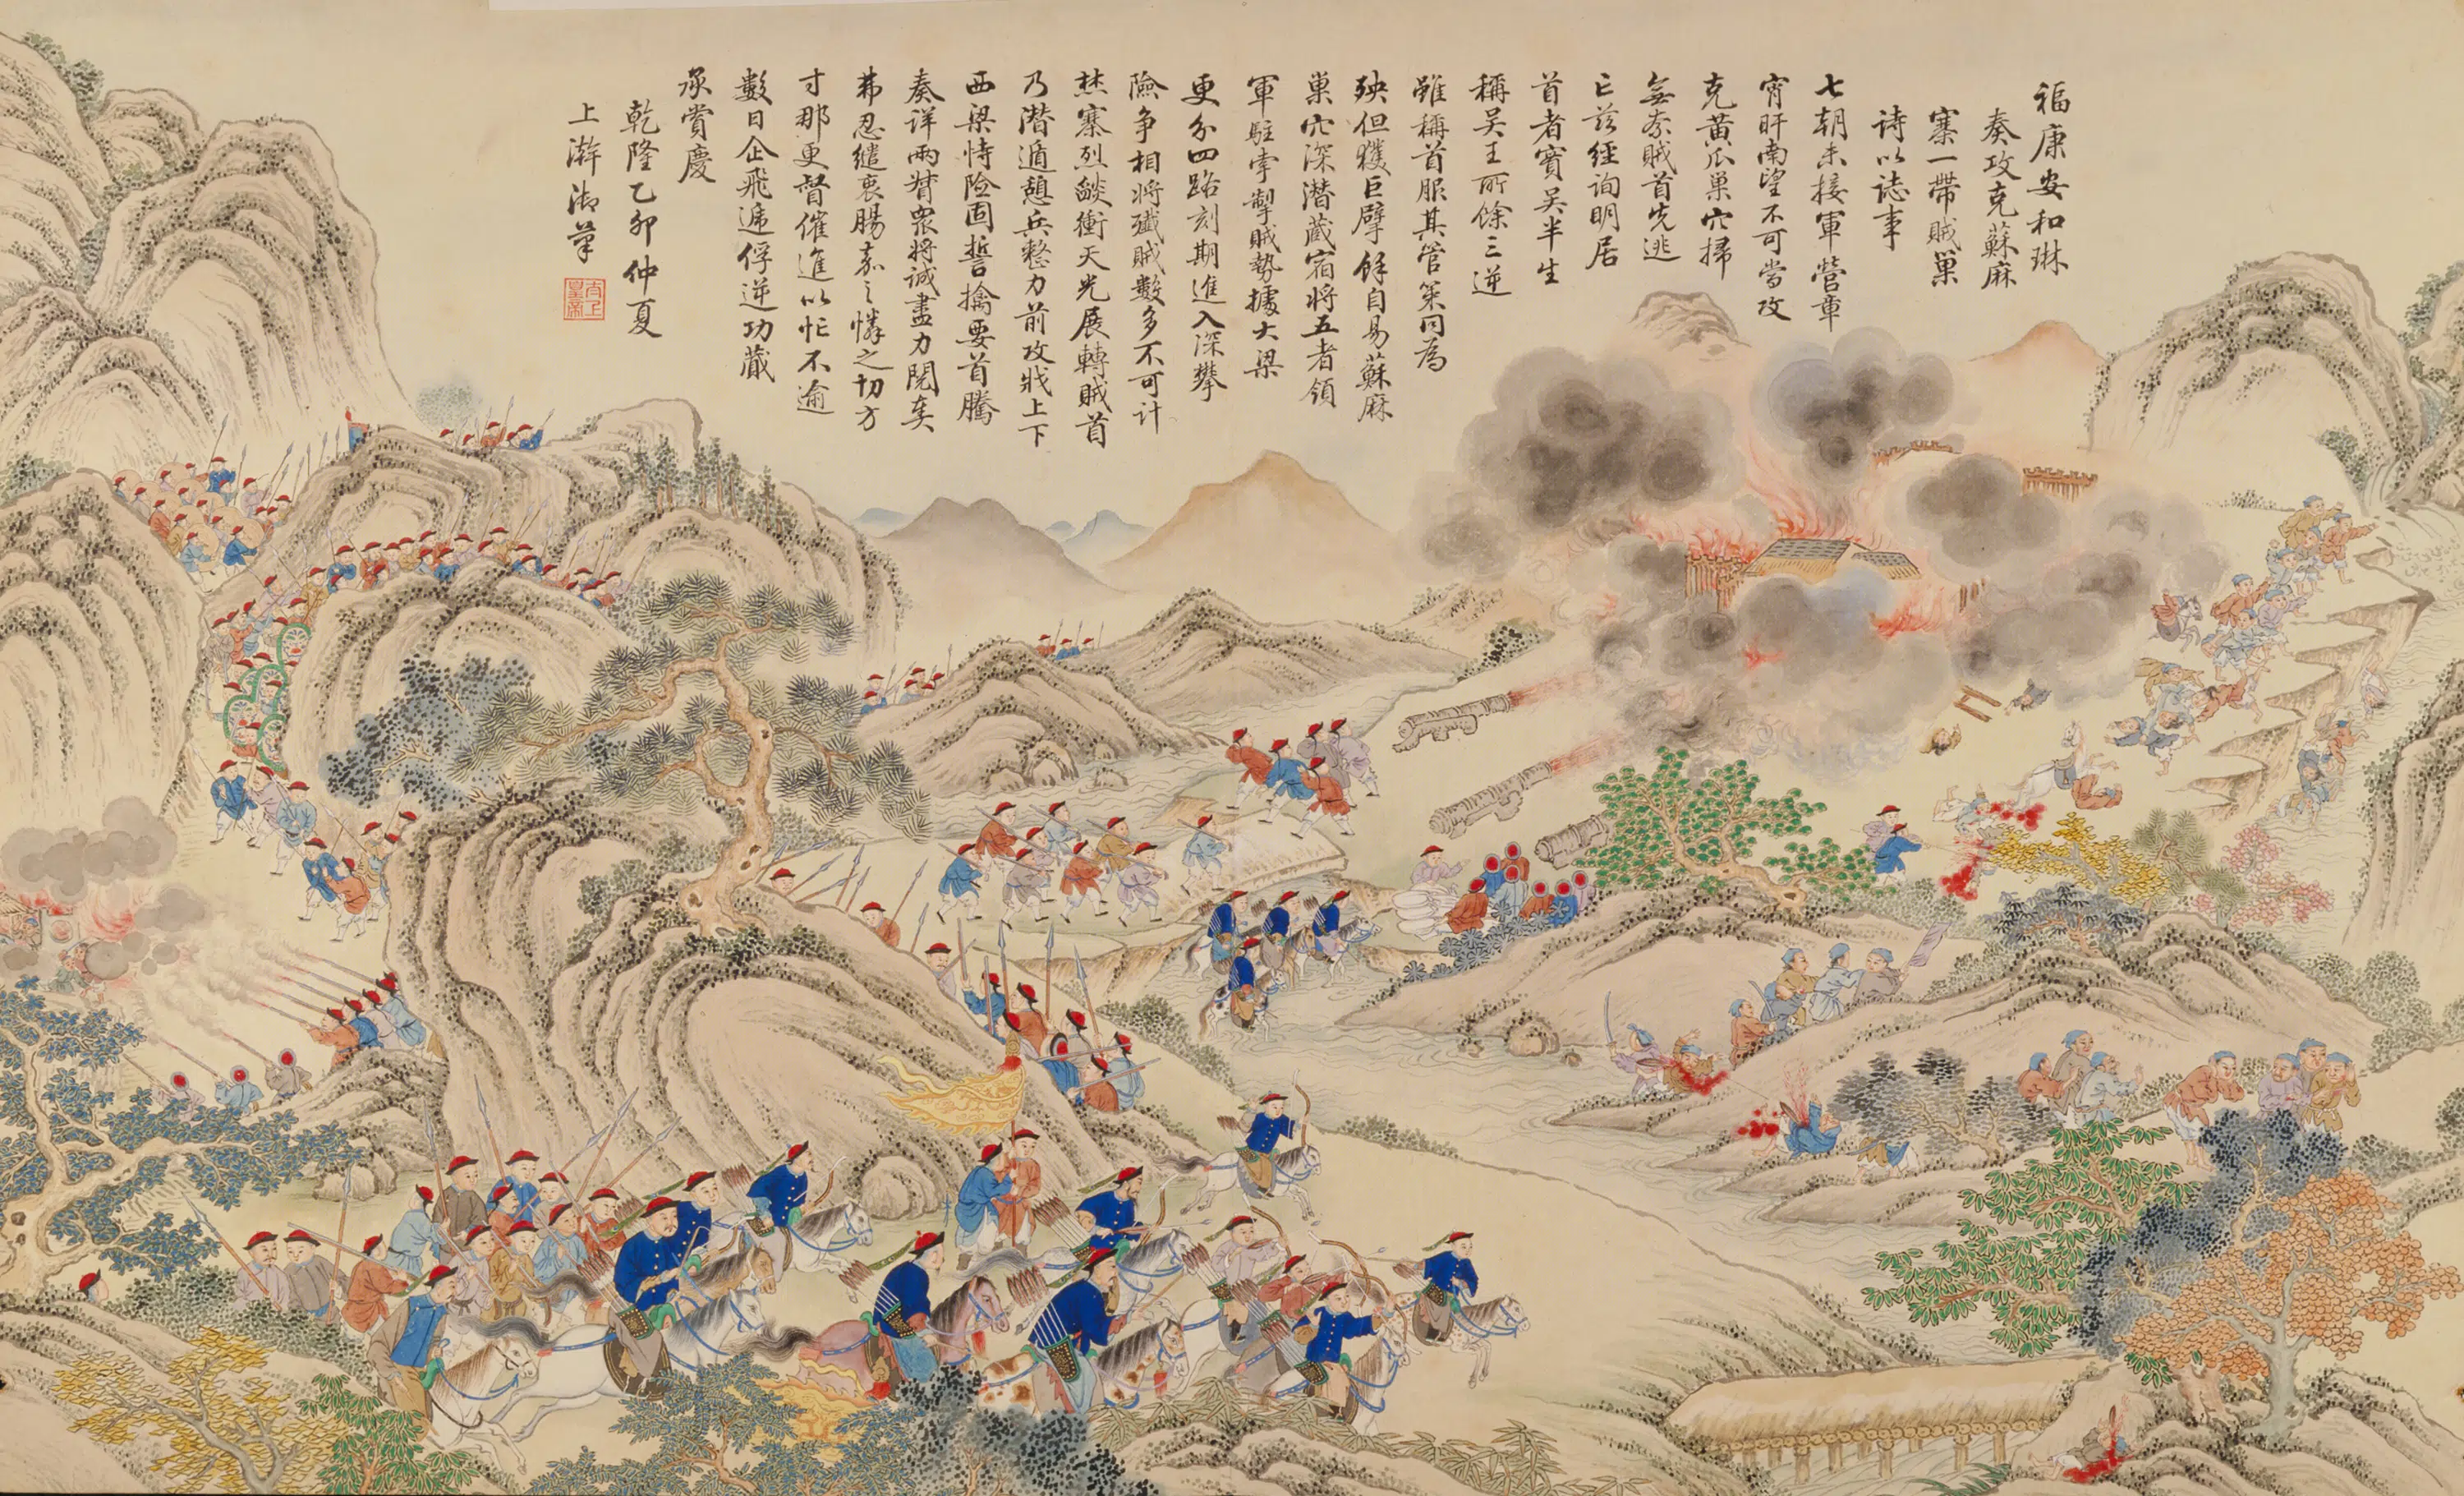 福康安和琳
奏攻克蘇麻
寨一帶賊巢
詩以誌事
七朝未接軍營章
宵旰南望不可當攻
克黃瓜巢穴掃
無奈賊首先逃
亡茲經詢明居
首者實吳半生
稱吴王所餘三逆
雖稱首服其管策同為
殃但獲巨擘餘自易蘇麻
巢穴深潛藏宿將五者領
軍駐牽掣賊勢據大梁
更分四路刻期進入深攀
險爭相將殲賊數多不可計
焚寨烈燄衝天光展轉賊首
乃潛遁憩兵整力前攻戕上下
西梁恃險固誓擒要首騰
奏詳兩督衆將誠盡力閱奏
弗忍繾衷腸嘉之憐之切方
寸那更督催進以忙不逾
數日企飛遞俘逆功蕆
承賞慶
乾隆乙卯仲夏
上澣御筆
太上皇帝